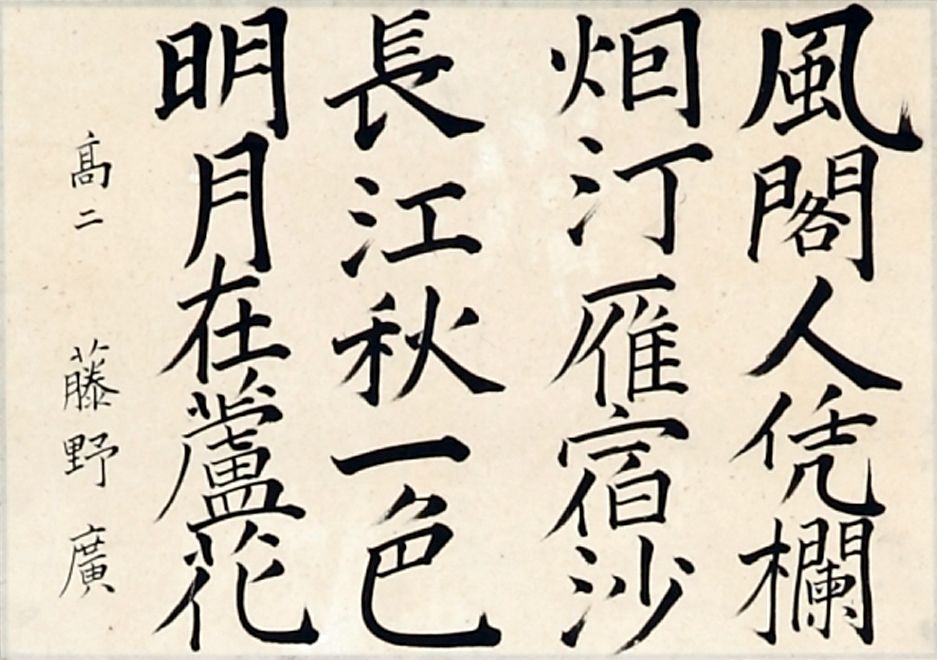 風閣人凭欄
烟汀雁宿沙
長江秋一色
明月在蘆花
髙二 藤野 廣